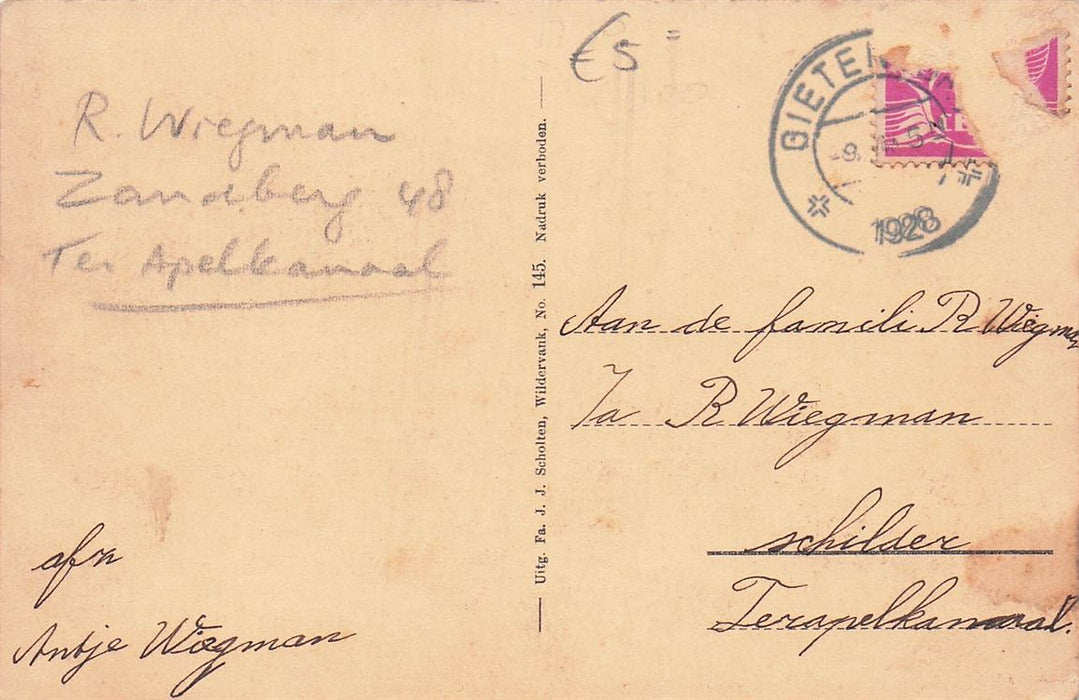 R. Wiegman
Zandberg 48
Ter Apelkanaal
afzn
Antje Wiegman
Uitg. Fa. J. J. Scholten, Wildervank, No. 145. Nadruk verboden.
€5 =
GIETEN
1928
Aan de famili R Wiegman
Ja R Wiegman
schilder
Terapelkanaal.